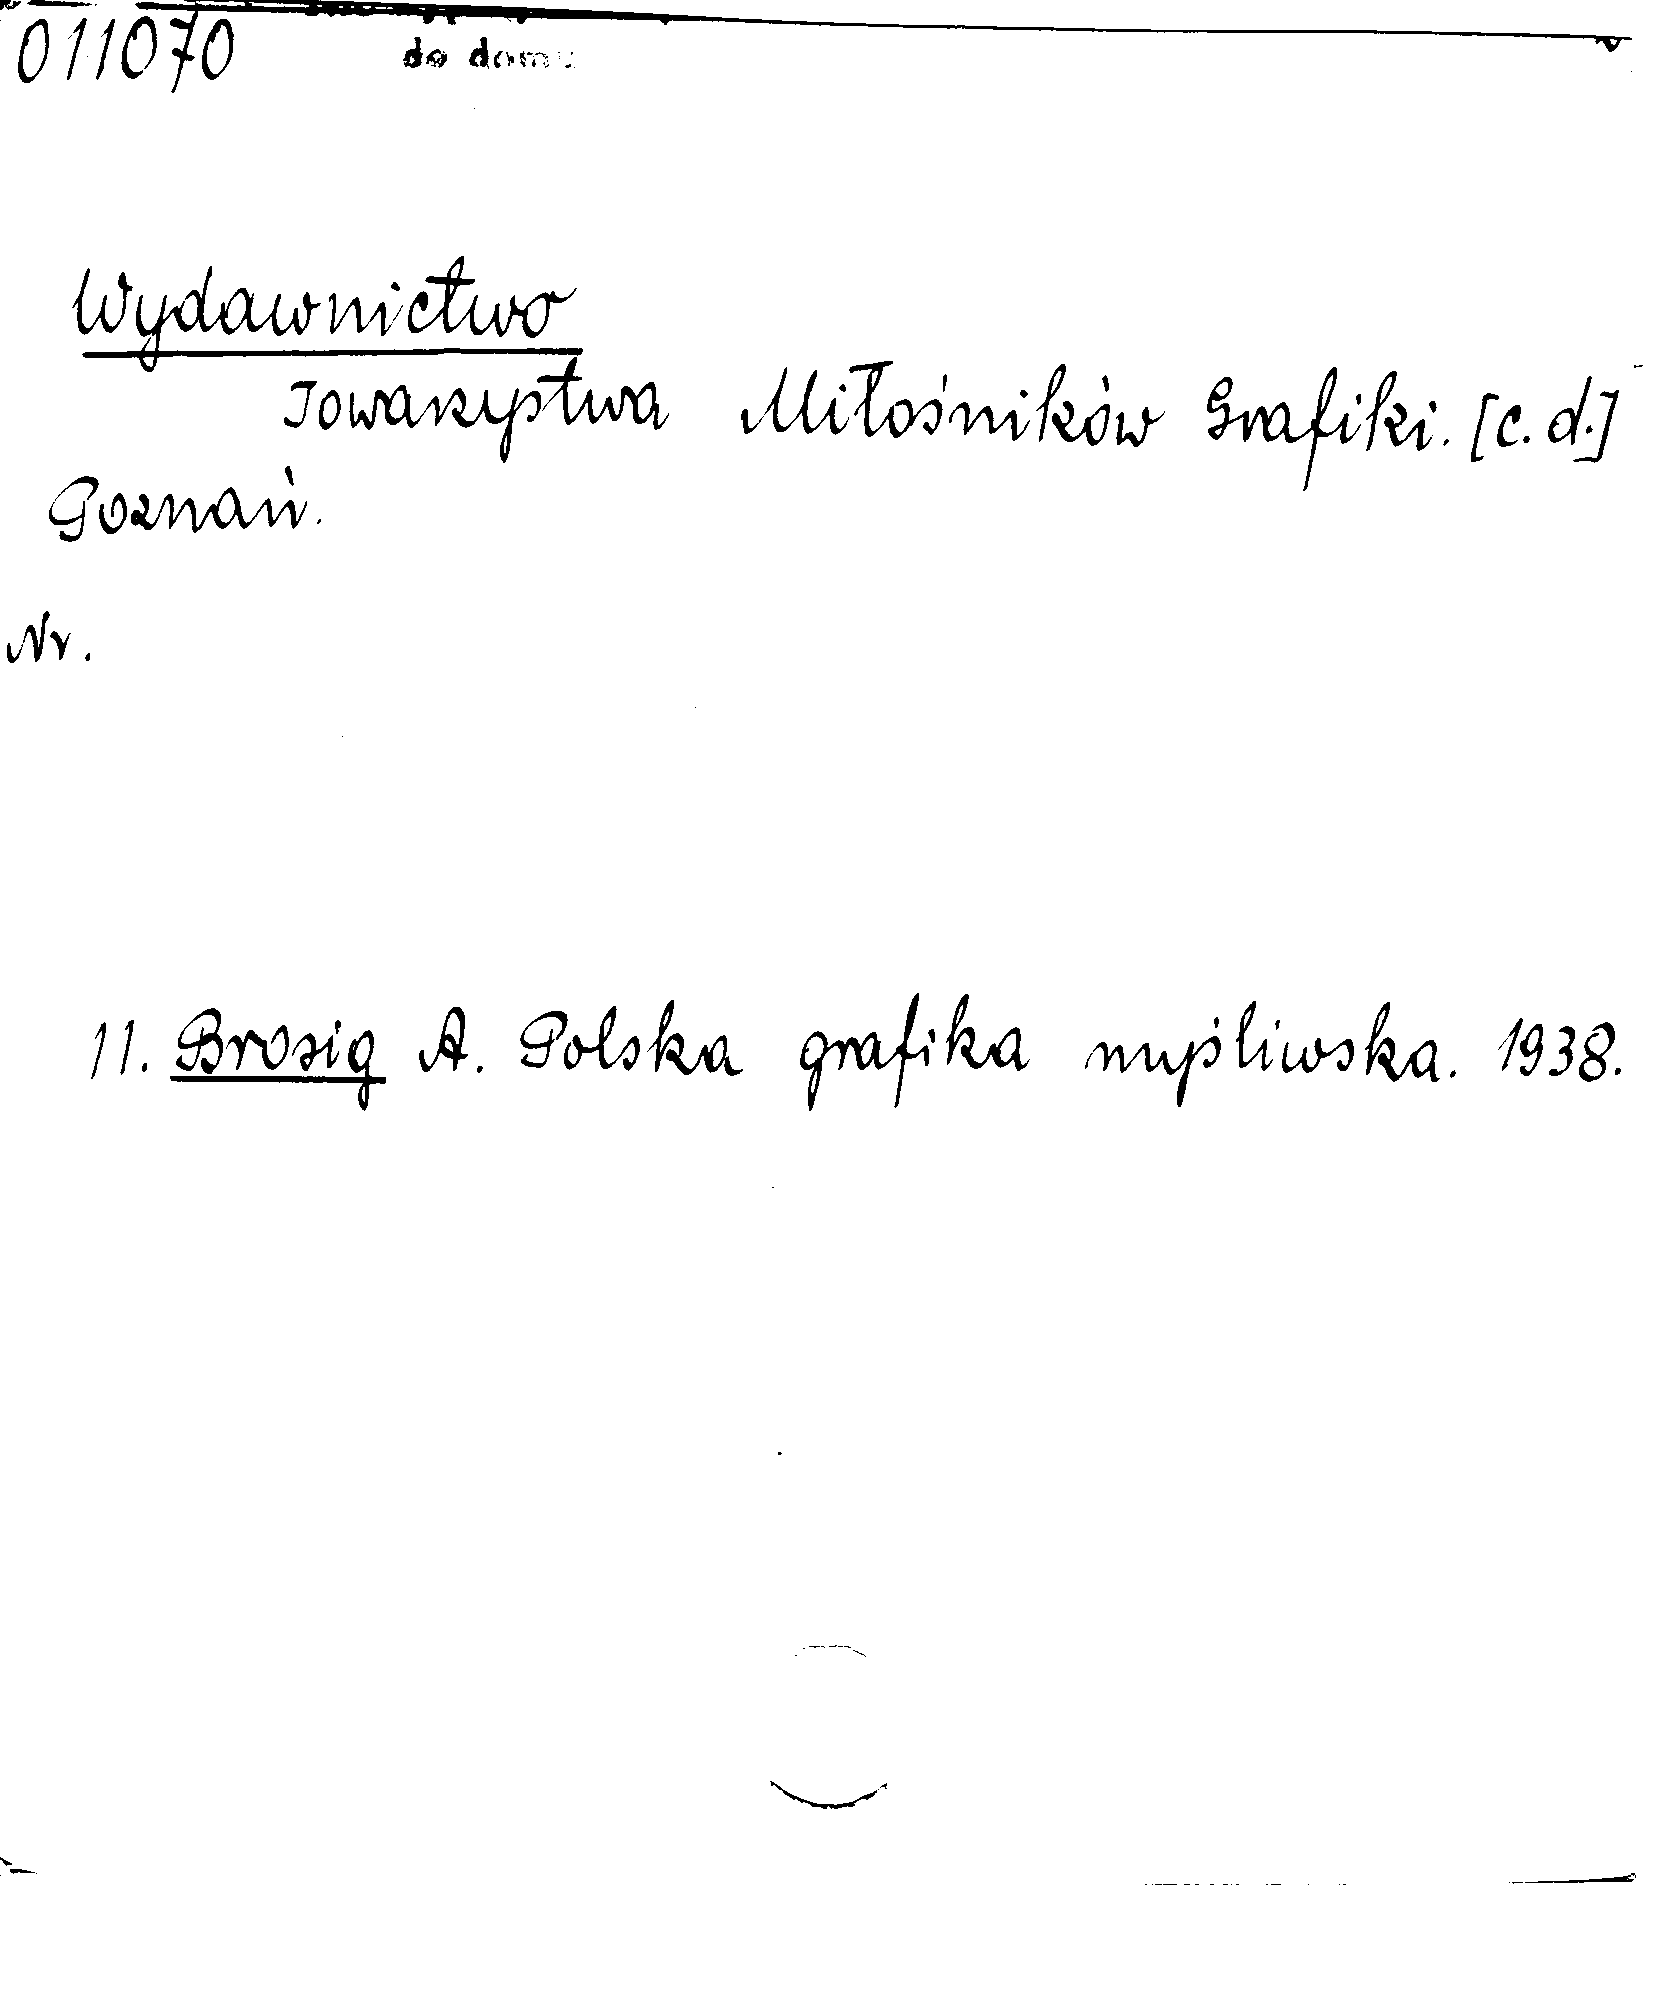 011070
do domu
Wydawnictwo
Towarzystwa Miłośników Grafiki. [c.d.]
Poznań.
Nr.
11. Brosig A. Polska grafika myśliwska. 1938.